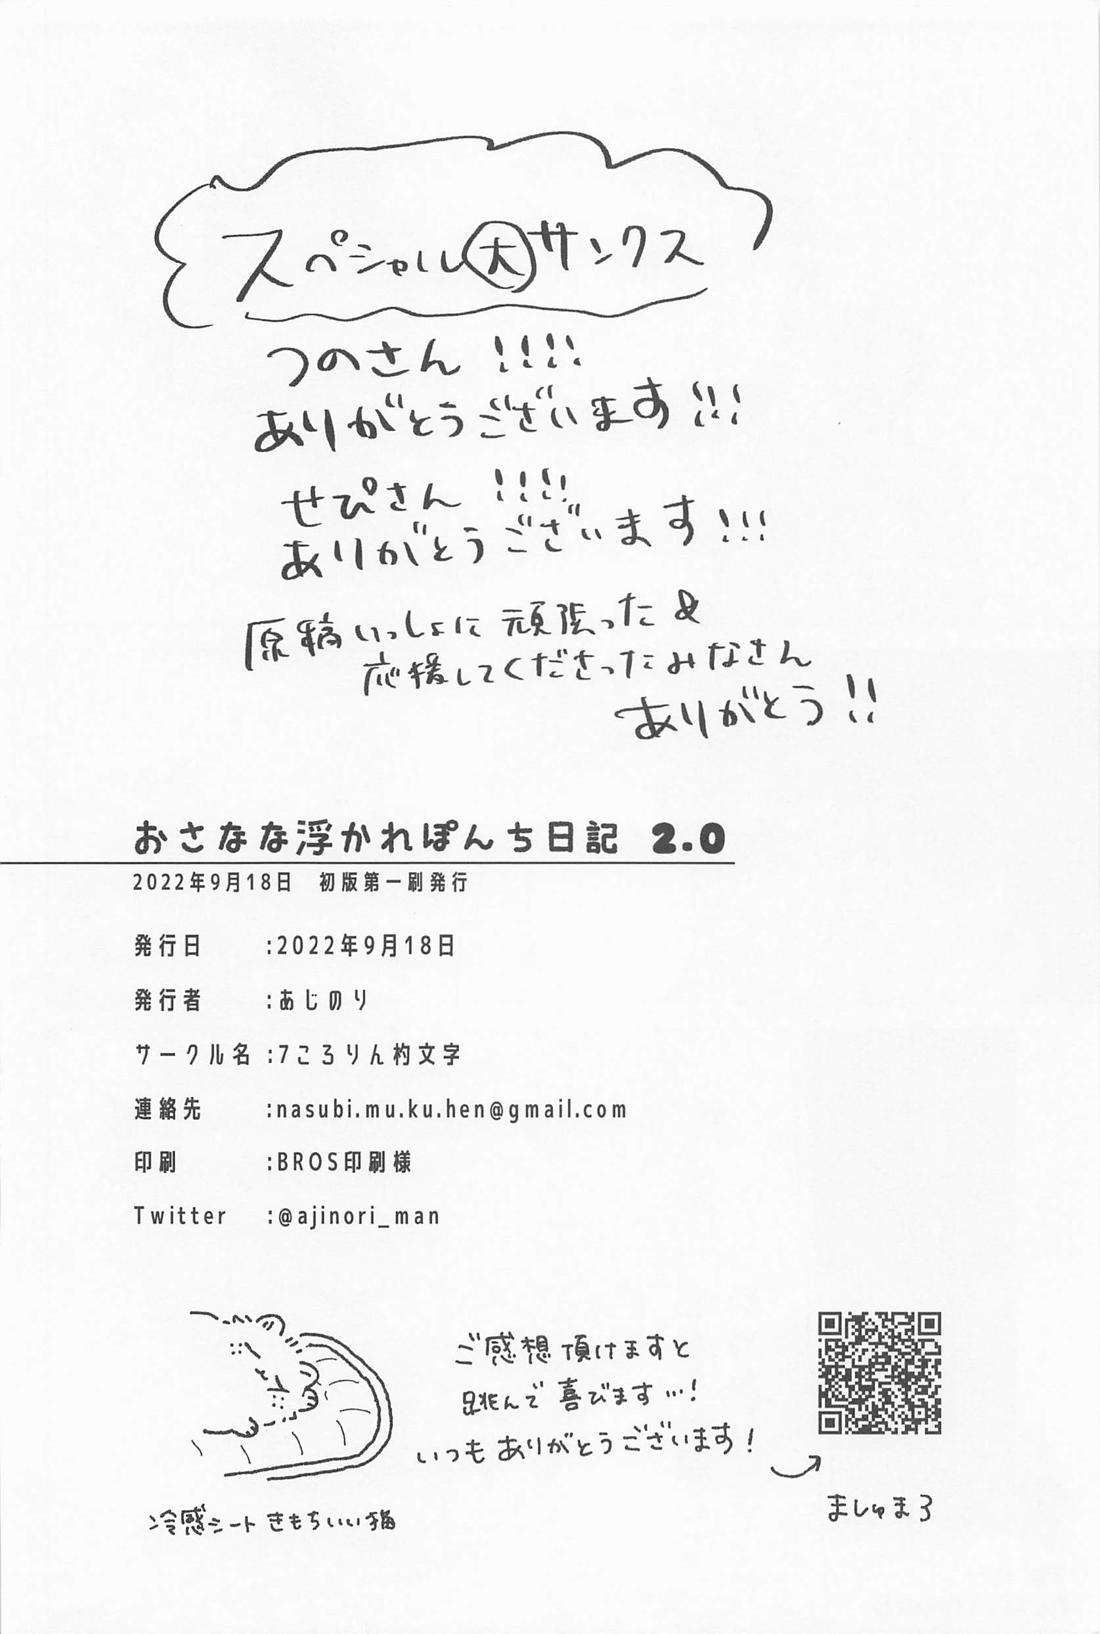 スペシャル大サンクス
つのさん!!!!
ありがとうございます!!!
せぴさん!!!!
ありがとうございます!!!
原稿いっしょに頑張った&
応援してくださったみなさん
ありがとう!!
おさなな浮かれぽんち日記 2.0
2022年9月18日　初版第一刷発行
発行日 :2022年9月18日
発行者 :あじのり
サークル名 :7ころりん杓文字
連絡先 :nasubi.mu.ku.hen@gmail.com
印刷 :BROS印刷様
Twitter :@ajinori_man
ご感想頂けますと
跳んで喜びます…!
いつもありがとうございます!
ましゅまろ
冷感シートきもちいい猫